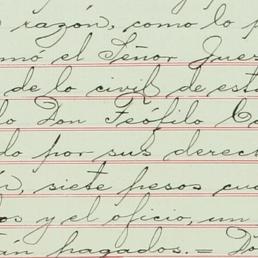 razón, como lo p
mó el Señor Juez
de lo civil de esta
lo Don Teófilo Ca
do por sus derech
n, siete pesos cua
os y el oficio, un
án pagados. = Do